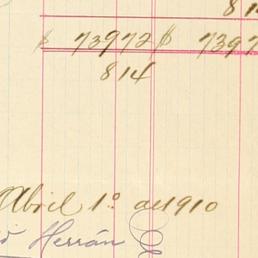 81
$ 73972 $ 7397
814
Abril 1º de 1910
Herrán